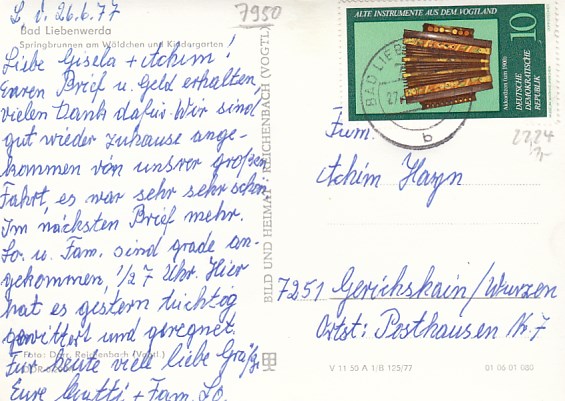 L., d. 26.6.77
7950
Bad Liebenwerda
Springbrunnen am Wäldchen und Kindergarten
Liebe Gisela + Achim!
Euren Brief u. Geld erhalten
vielen Dank dafür. Wir sind
gut wieder zuhause ange-
kommen von unsrer großen
Fahrt, es war sehr sehr schön
Im nächsten Brief mehr.
Lo. u. Fam. sind grade an-
gekommen, 1/2 7 Uhr. Hier
hat es gestern tüchtig
gewittert und geregnet.
Für heute viel liebe Grüße
Eure Mutti + Fam. Lo.
Reichenbach (Vogtl.)
BILD UND HEIMAT REICHENBACH (VOGTL)
ALTE INSTRUMENTE AUS DEM VOGTLAND
10
DEUTSCHE
DEMOKRATISCHE
REPUBLIK
Akkordeon um 1900
BAD LIEB
27.
b
22,24
Fam.
Achim Hayn
7251 Gerichshain/Wurzen
Ortst: Posthausen Nr. 7
V 11 50 A 1/B 125/77
01 06 01 080